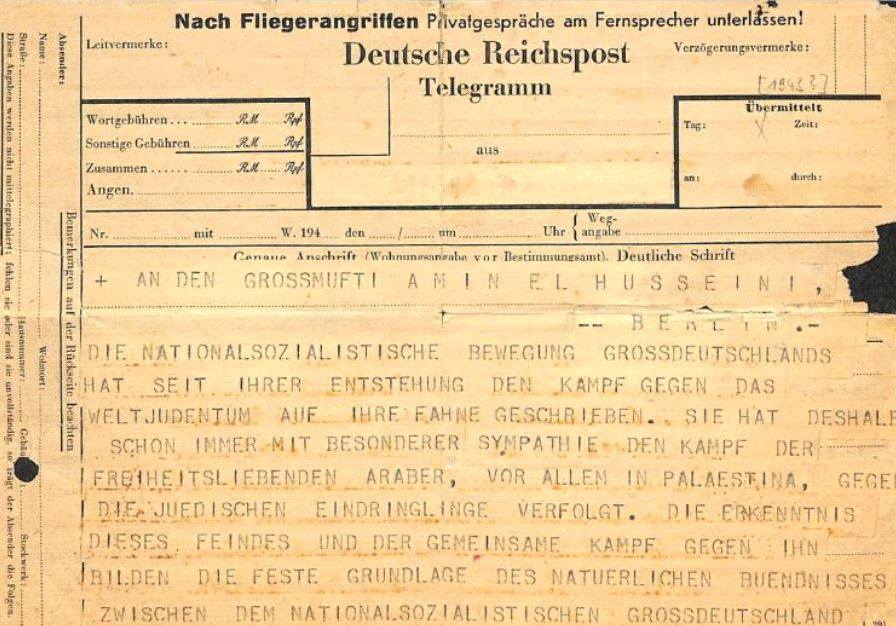 Nach Fliegerangriffen Privatgespräche am Fernsprecher unterlassen!
Leitvermerke:
Deutsche Reichspost
Verzögerungsvermerke:
Telegramm
[1943?]
Wortgebühren ... RM Rpf
Sonstige Gebühren RM Rpf
Zusammen ...... RM Rpf
Angen.
aus
Übermittelt
Tag: Zeit:
an: durch:
Nr. mit W. 194 den / um Uhr { Weg-
angabe
Genaue Anschrift (Wohnungsangabe vor Bestimmungsamt). Deutliche Schrift
+ AN DEN GROSSMUFTI AMIN EL HUSSEINI,
-- BERLIN.-
DIE NATIONALSOZIALISTISCHE BEWEGUNG GROSSDEUTSCHLANDS
HAT SEIT IHRER ENTSTEHUNG DEN KAMPF GEGEN DAS
WELTJUDENTUM AUF IHRE FAHNE GESCHRIEBEN. SIE HAT DESHALB
SCHON IMMER MIT BESONDERER SYMPATHIE DEN KAMPF DER
FREIHEITSLIEBENDEN ARABER, VOR ALLEM IN PALAESTINA, GEGE
DIE JUEDISCHEN EINDRINGLINGE VERFOLGT. DIE ERKENNTNIS
DIESES FEINDES UND DER GEMEINSAME KAMPF GEGEN IHN
BILDEN DIE FESTE GRUNDLAGE DES NATUERLICHEN BUENDNISSES
ZWISCHEN DEM NATIONALSOZIALISTISCHEN GROSSDEUTSCHLAND
Bemerkungen auf der Rückseite beachten
Absender:
Name: Wohnort:
Straße: Hausnummer: Stockwerk:
Diese Angaben werden nicht mittelegraphiert; fehlen sie oder sind sie unvollständig, so trägt der Absender die Folgen.